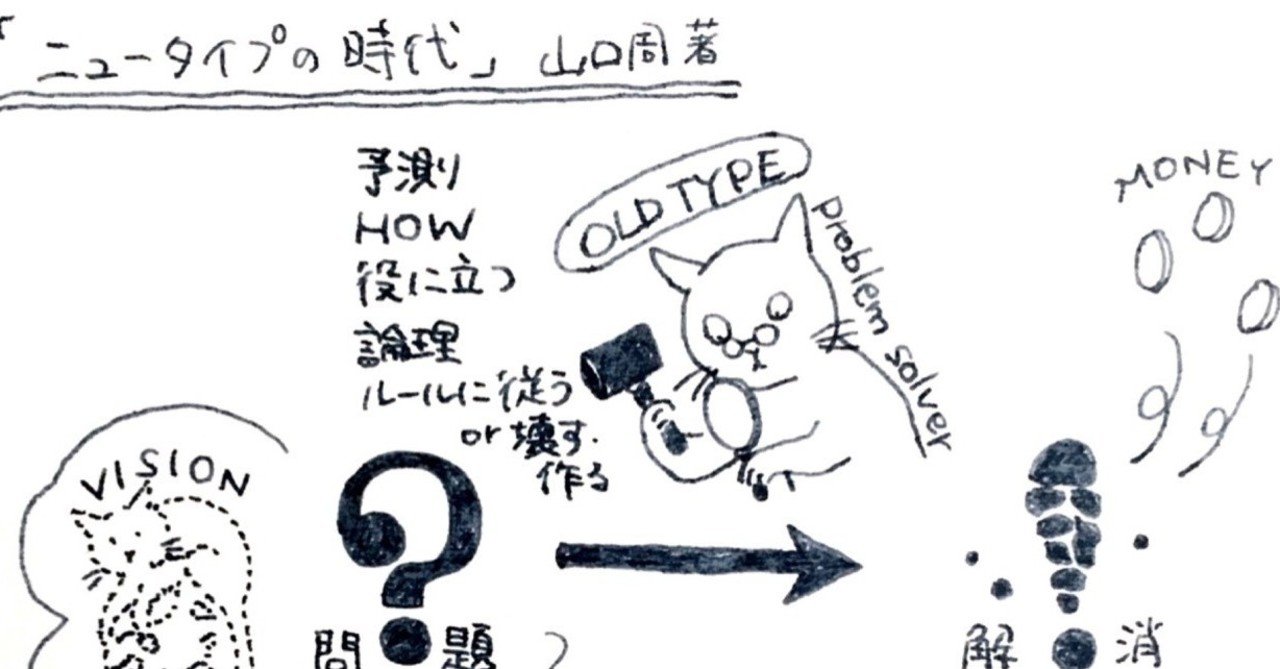 「ニュータイプの時代」 山口周著
予測
HOW
役に立つ
論理
ルールに従う
or 壊す.
作る
OLD TYPE
problem solver
MONEY
VISION
問題
解消